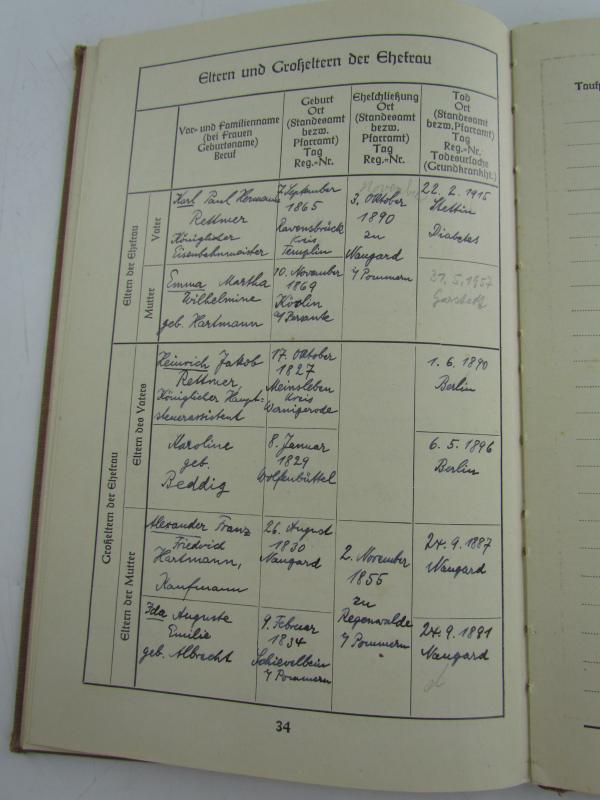 Eltern und Großeltern der Ehefrau
Vor- und Familienname
(bei Frauen
Geburtsname)
Beruf
Geburt
Ort
(Standesamt
bezw.
Pfarramt)
Tag
Reg.-Nr.
Eheschließung
Ort
(Standesamt
bezw.
Pfarramt)
Tag
Reg.-Nr.
Tod
Ort
(Standesamt
bezw. Pfarramt)
Tag
Reg.-Nr.
Todesursache
(Grundkrankht.)
Taufs
Eltern der Ehefrau
Vater
Karl Paul Hermann
Rettner
Königlicher
Eisenbahnmeister
7. September
1865
Ravensbrück
Kreis
Templin
November
3. Oktober
1890
zu
Naugard
i/Pommern
22. 2. 1915
Stettin
Diabetes
Mutter
Emma Martha
Wilhelmine
geb. Hartmann
10. November
1869
Köslin
31. 5. 1957
Großeltern der Ehefrau
Eltern des Vaters
Heinrich Jakob
Rettner,
Königlicher Haupt-
steuerassistent
17. Oktober
1827
Meinsleben
Kreis
Wernigerode
1. 6. 1890
Berlin
Karoline
geb.
Beddig
8. Januar
1829
Wolfenbüttel
6. 5. 1896
Berlin
Eltern der Mutter
Alexander Franz
Friedrich
Hartmann,
Kaufmann
26. August
1830
Naugard
2. November
1855
zu
Regenwalde
i/Pommern
24. 9. 1887
Naugard
Ida Auguste
Emilie
geb. Albrecht
9. Februar
1834
Schievelbein
i/Pommern
24. 9. 1891
Naugard
34